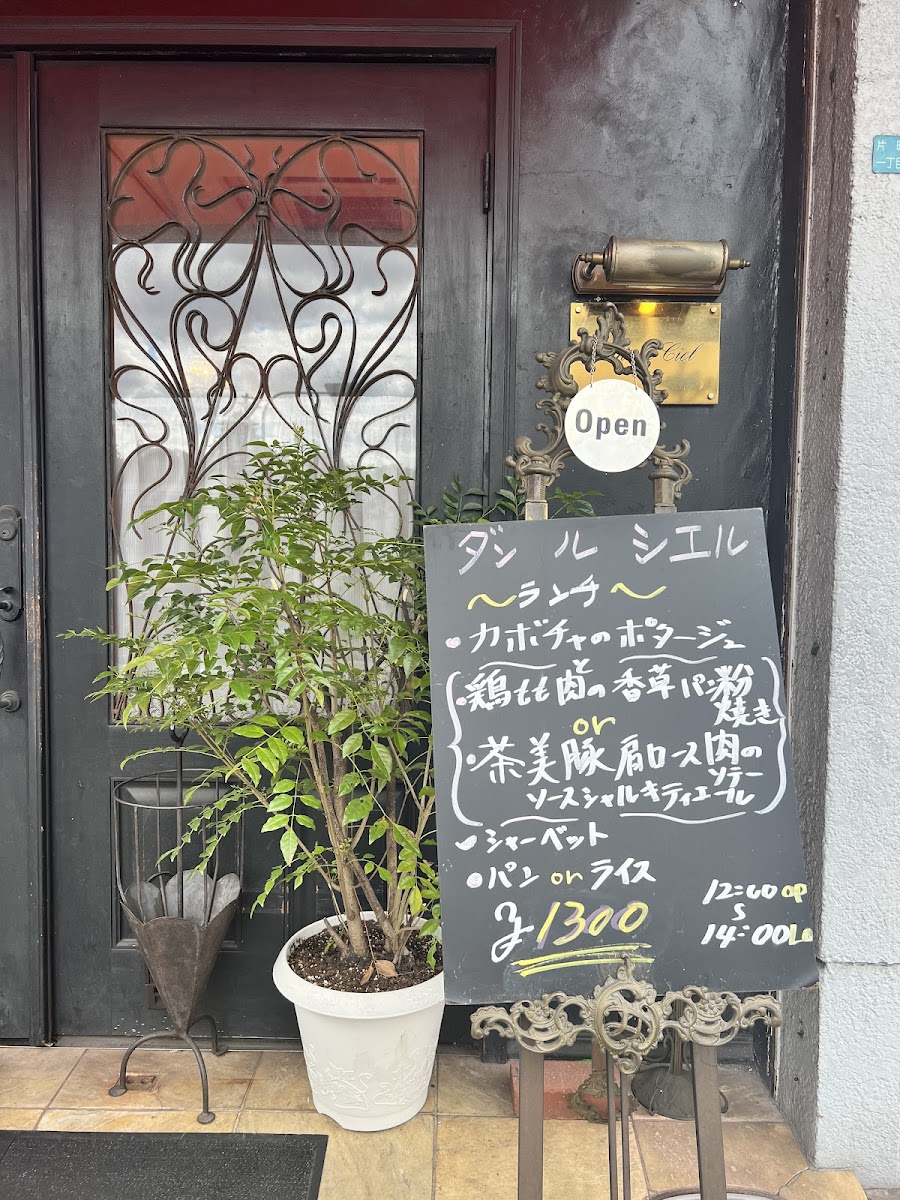 片
一丁目
Ciel
Open
ダン ル シエル
～ランチ～
・カボチャのポタージュ
・鶏もも肉の香草パン粉
焼き
or
・茶美豚肩ロース肉の
ソテー
ソースシャルキティエール
・シャーベット
・パン or ライス
1300
12:00 op
14:00 Lo